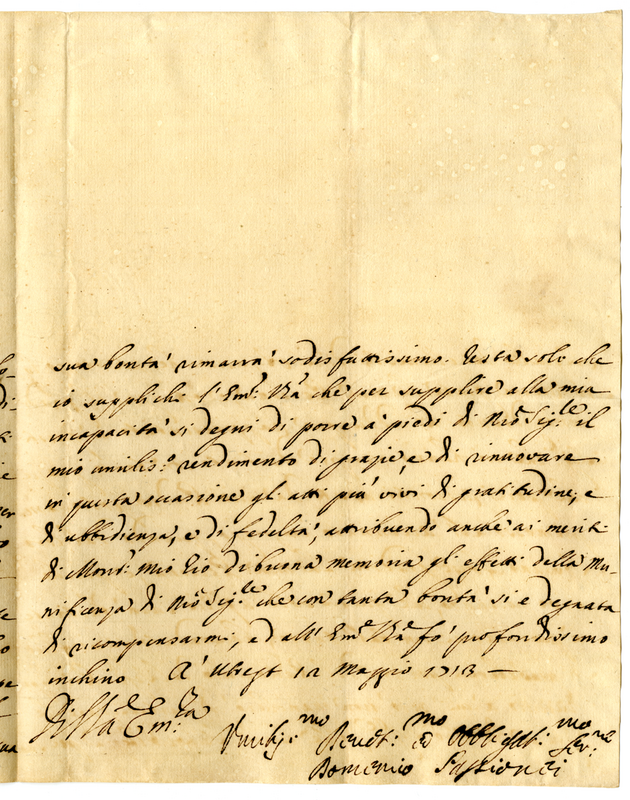 sua bontà rimarrà sodisfattissimo. Resta solo che
io supplichi l'Em.ᵃ Vʳᵃ che per supplire alla mia
incapacità si degni di porre a' piedi di Nrõ Sig.ʳᵉ il
mio umilis.º rendimento di grazie, e di rinuovare
in questa occasione gli atti più vivi di gratitudine, e
di ubbidienza, e di fedeltà, attribuendo anche ai meriti
di Monsʳ. mio Zio di buona memoria gli effetti della Mu-
nificenza di Nrõ Sig.ʳᵉ che con tanta bontà si è degnata
di ricompensarmi, ed all' Em.ᵃ Vʳᵃ fò profondissimo
inchino A' Utregt 12 Maggio 1713 —
Di Vʳᵃ Em.ᶻᵃ
Umilis.ᵐᵒ Devot.ᵐᵒ ed Obbligat.ᵐᵒ Ser.ʳᵉ
Domenico Passionei